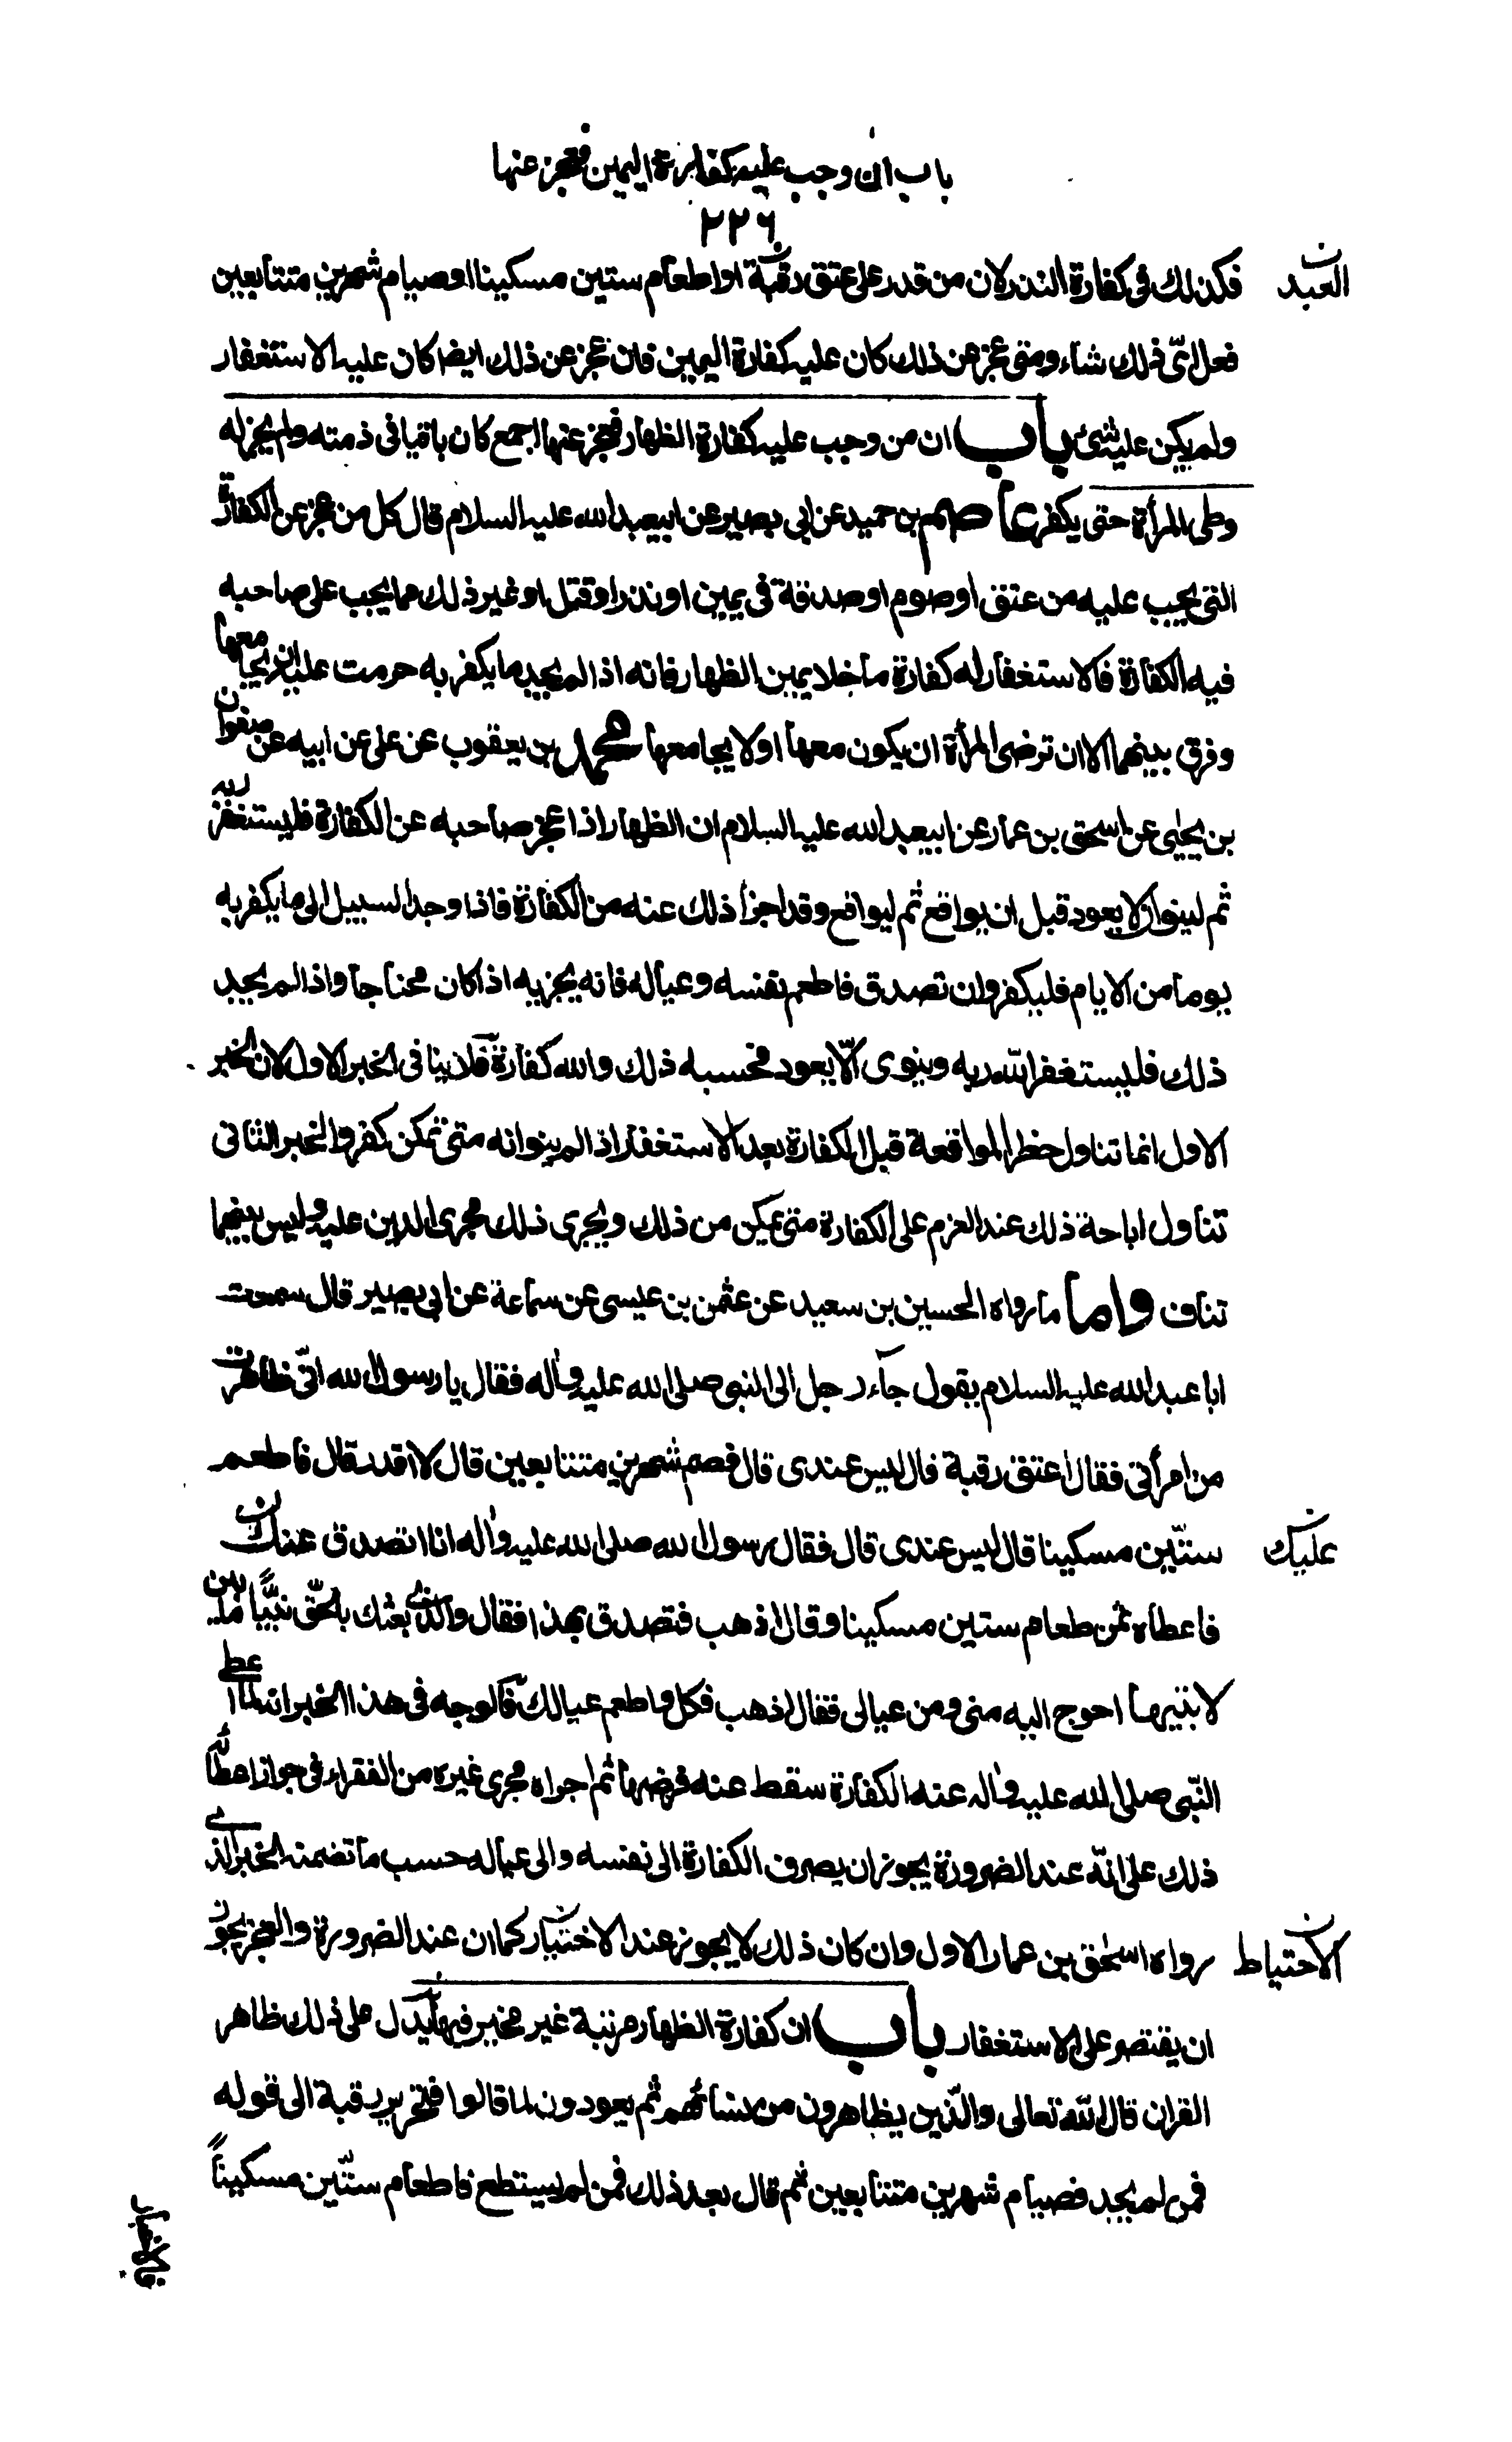 باب ان وجب عليه كفارة اليمين فعجز عنها
٢٢٦
فكذلك فى كفارة النذر لان من قدر على عتق رقبة او اطعام ستين مسكينا او صيام شهرين متتابعين
العبد
فعل اىّ ذلك شاء ومتى عجز عن ذلك كان عليه كفارة اليمين فان عجز عن ذلك ايضا كان عليه الاستغفار
ولم يكن عليه شئ باب ان من وجب عليه كفارة الظهار فعجز عنها اجمع كان باقيا فى ذمته ولم يجز له
وطى المرأة حتى يكفر عاصم بن حميد عن ابى بصير عن ابيعبد الله عليه السلام قال كل من عجز عن الكفارة
التى يجب عليه من عتق او صوم او صدقة فى يمين او نذر او قتل او غير ذلك مما يجب على صاحبه
فيه الكفارة فالاستغفار له كفارة ما خلا يمين الظهار فانه اذا لم يجد ما يكفر به حرمت عليه ان يجامعها
وفرق بينهما الا ان ترضى المرأة ان يكون معها او لا يجامعها محمد بن يعقوب عن على عن ابيه عن صفوان
بن يحيى عن اسحق بن عمار عن ابيعبد الله عليه السلام ان الظهار اذا عجز صاحبه عن الكفارة فليستغفر ربه
ثم لينوان لا يعود قبل ان يواقع ثم ليواقع وقد اجزأ ذلك عنه من الكفارة فاذا وجد السبيل الى ما يكفر به
يوما من الايام فليكفر وان تصدق فاطعم نفسه وعياله فانه يجزيه اذا كان محتاجا واذا لم يجد
ذلك فليستغفر الله ربه وينوى الّا يعود فحسبه ذلك والله كفارة فلا ينافى الخبر الاول لان الخبر
الاول انما تناول حظر المواقعة قبل الكفارة بعد الاستغفار اذا لم ينو انه متى تمكن كفر والخبر الثانى
تناول اباحة ذلك عند العزم على الكفارة متى تمكن من ذلك ويجرى ذلك مجرى الدين عليه وليس بينهما
تناف واما ما رواه الحسين بن سعيد عن عثمن بن عيسى عن سماعة عن ابى بصير قال سمعت
ابا عبد الله عليه السلام يقول جآء رجل الى النبى صلى الله عليه واله فقال يا رسول الله انّى ظاهرت
من امرأتى فقال اعتق رقبة قال ليس عندى قال فصم شهرين متتابعين قال لا اقدر قال فاطعم
ستّين مسكينا قال ليس عندى قال فقال رسول الله صلى الله عليه واله انا اتصدق عنك
عليك
فاعطاه ثمن طعام ستين مسكينا وقال اذهب فتصدق بهذا فقال والذى بعثك بالحقّ نبيّاً ما بين
لابتيها احوج اليه منى ومن عيالى فقال اذهب فكل واطعم عيالك فالوجه فى هذا الخبر انه لما اعطى
النّبى صلى الله عليه واله عنه الكفارة سقط عنه فرضها ثم اجراه مجرى غيره من الفقراء فى جواز اعطائه
ذلك على انّه عند الضرورة يجوز ان يصرف الكفارة الى نفسه والى عياله حسب ما تضمنه الخبر الذى
رواه اسحق بن عمار الاول وان كان ذلك لا يجوز عند الاختيار كما ان عند الضرورة والعجز يجوز
الاحتياط
ان يقتصر على الاستغفار باب ان كفارة الظهار مرتبة غير مخير فيها يدل على ذلك ظاهر
القران قال الله تعالى والّذين يظاهرون من نسائهم ثم يعودون لما قالوا فتحرير رقبة الى قوله
فمن لم يجد فصيام شهرين متتابعين ثم قال بعد ذلك فمن لم يستطع فاطعام ستّين مسكيناً